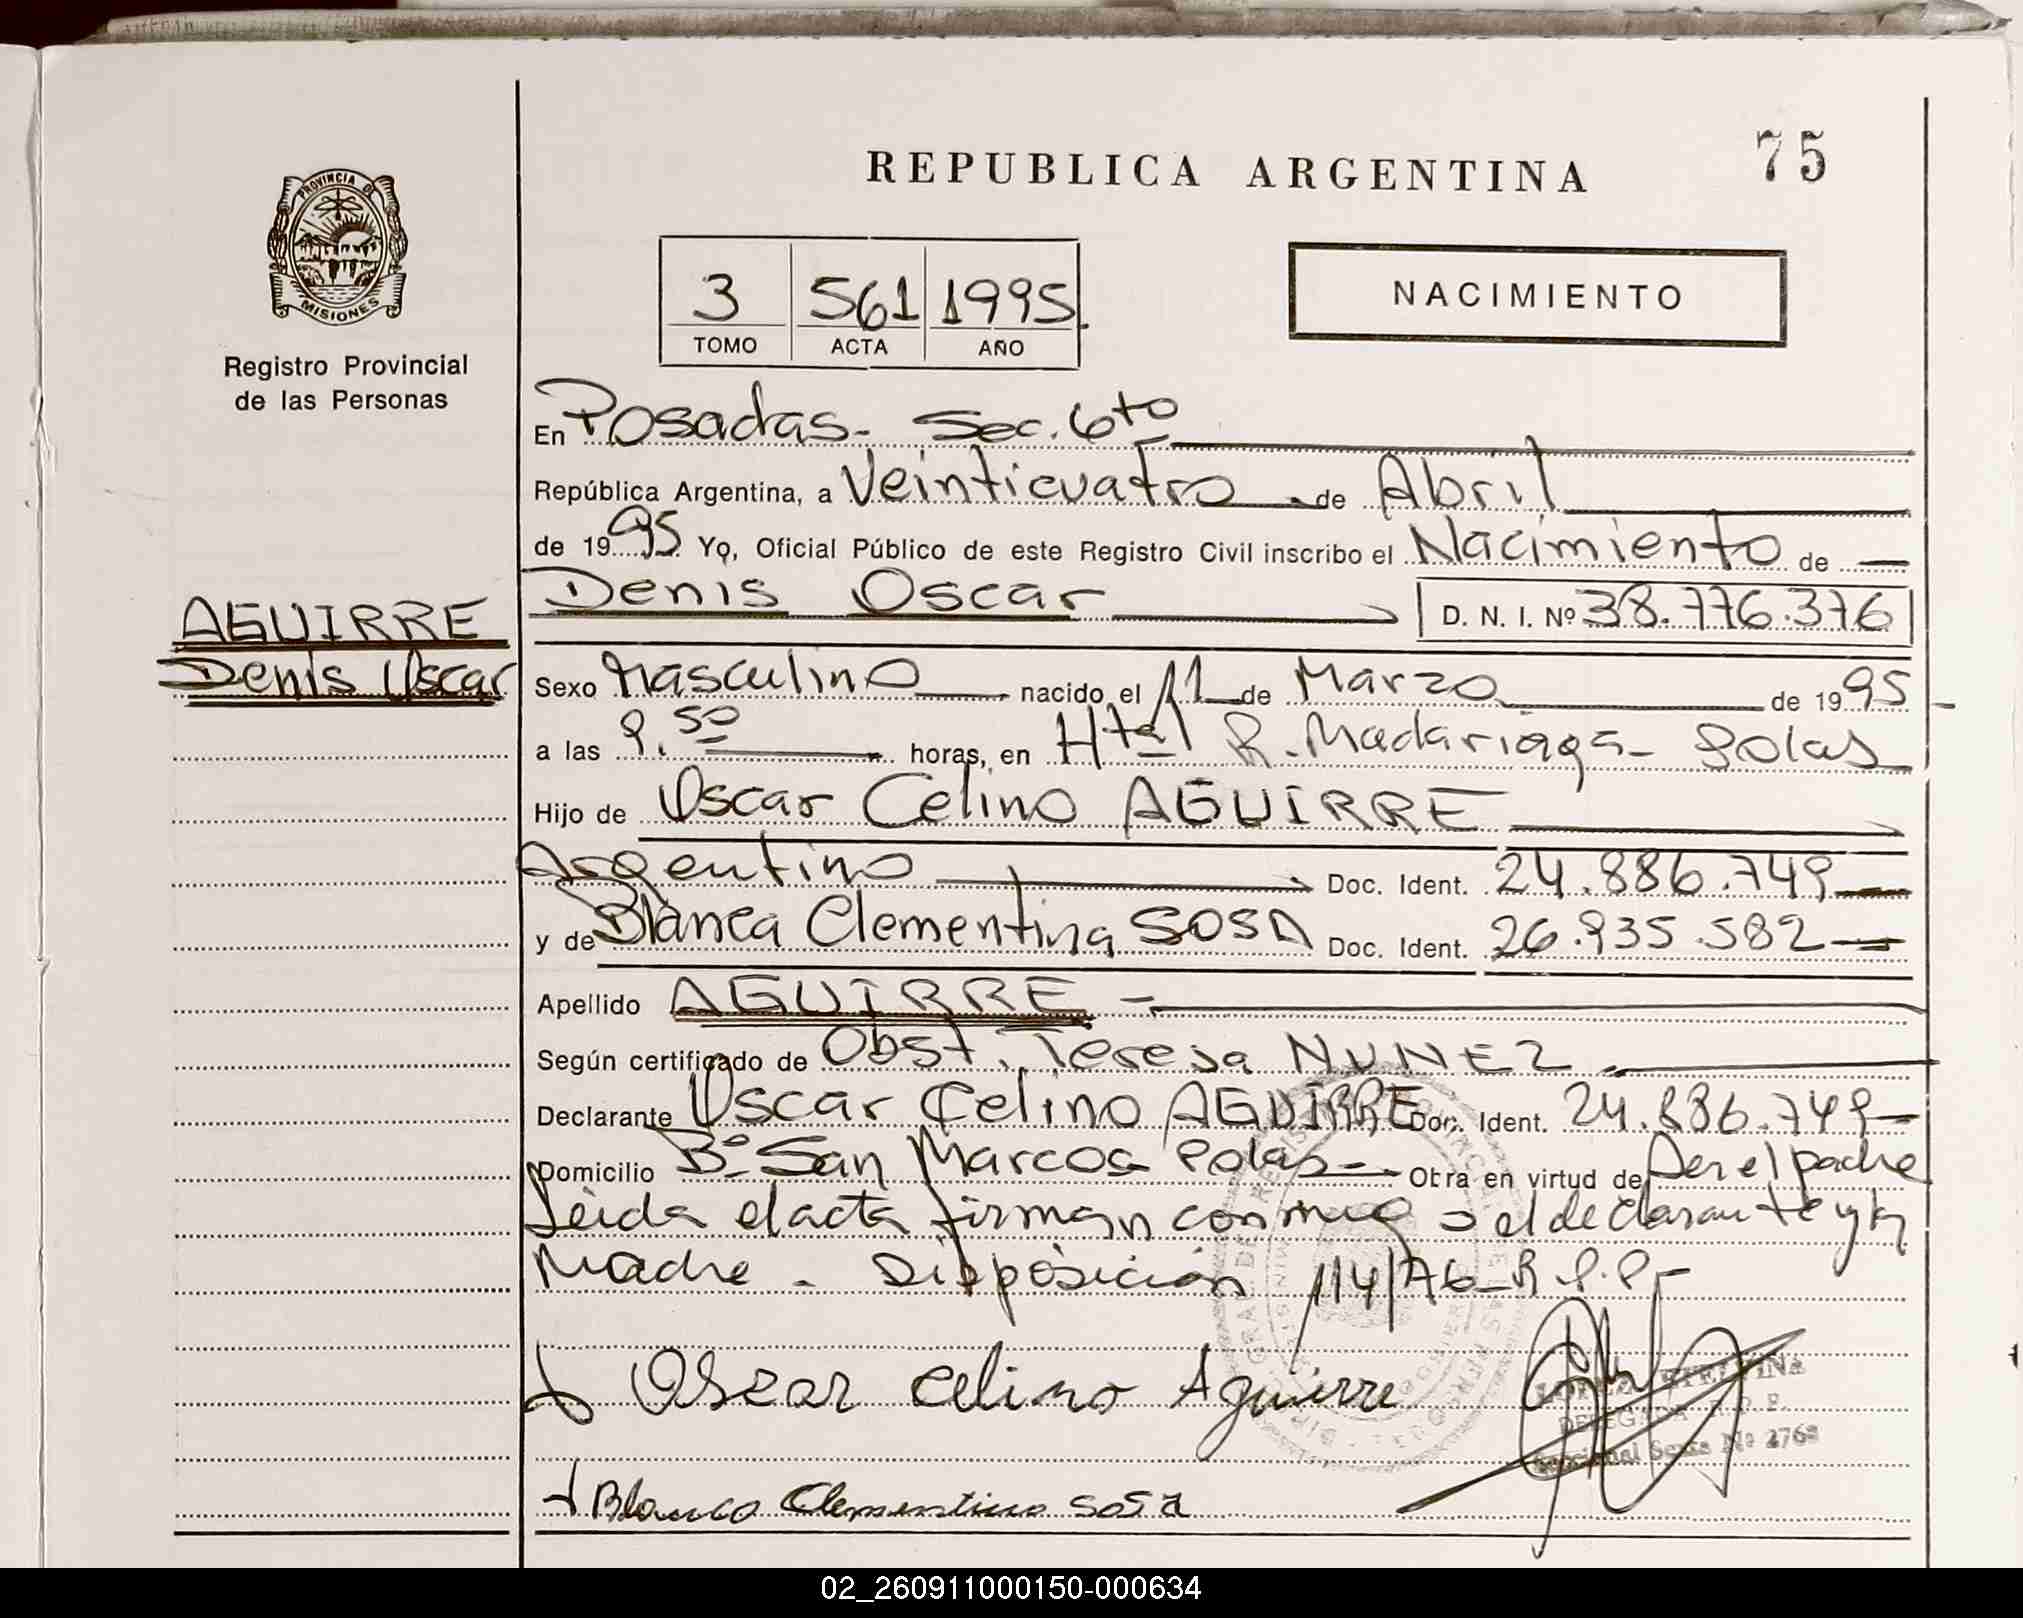 REPUBLICA ARGENTINA
75
PROVINCIA DE
MISIONES
Registro Provincial
de las Personas
3 561 1995
TOMO ACTA AÑO
NACIMIENTO
En Posadas - Sec. 6to
República Argentina, a Veinticuatro de Abril
de 1995 Yo, Oficial Público de este Registro Civil inscribo el Nacimiento de
Denis Oscar D. N. I. Nº 38.776.376
AGUIRRE
Denis Oscar
Sexo Masculino nacido el 11 de Marzo de 1995
a las 9.50 horas, en Htal R. Madariaga - Pdas
Hijo de Oscar Celino AGUIRRE
Argentino Doc. Ident. 24.886.749
y de Blanca Clementina SOSA Doc. Ident. 26.935.582
Apellido AGUIRRE -
Según certificado de Obst. Teresa NUNEZ
Declarante Oscar Celino AGUIRRE Doc. Ident. 24.886.749
Domicilio Bº San Marcos Pdas - Obra en virtud de Ser el padre
Leida el acta firman conmigo el declarante y la
Madre - Disposición 114/76 - R.P.P -
Oscar Celino Aguirre
DELEGADA R.P.P.
Seccional Sexta Nº 2768
Blanca Clementina Sosa
02_260911000150-000634